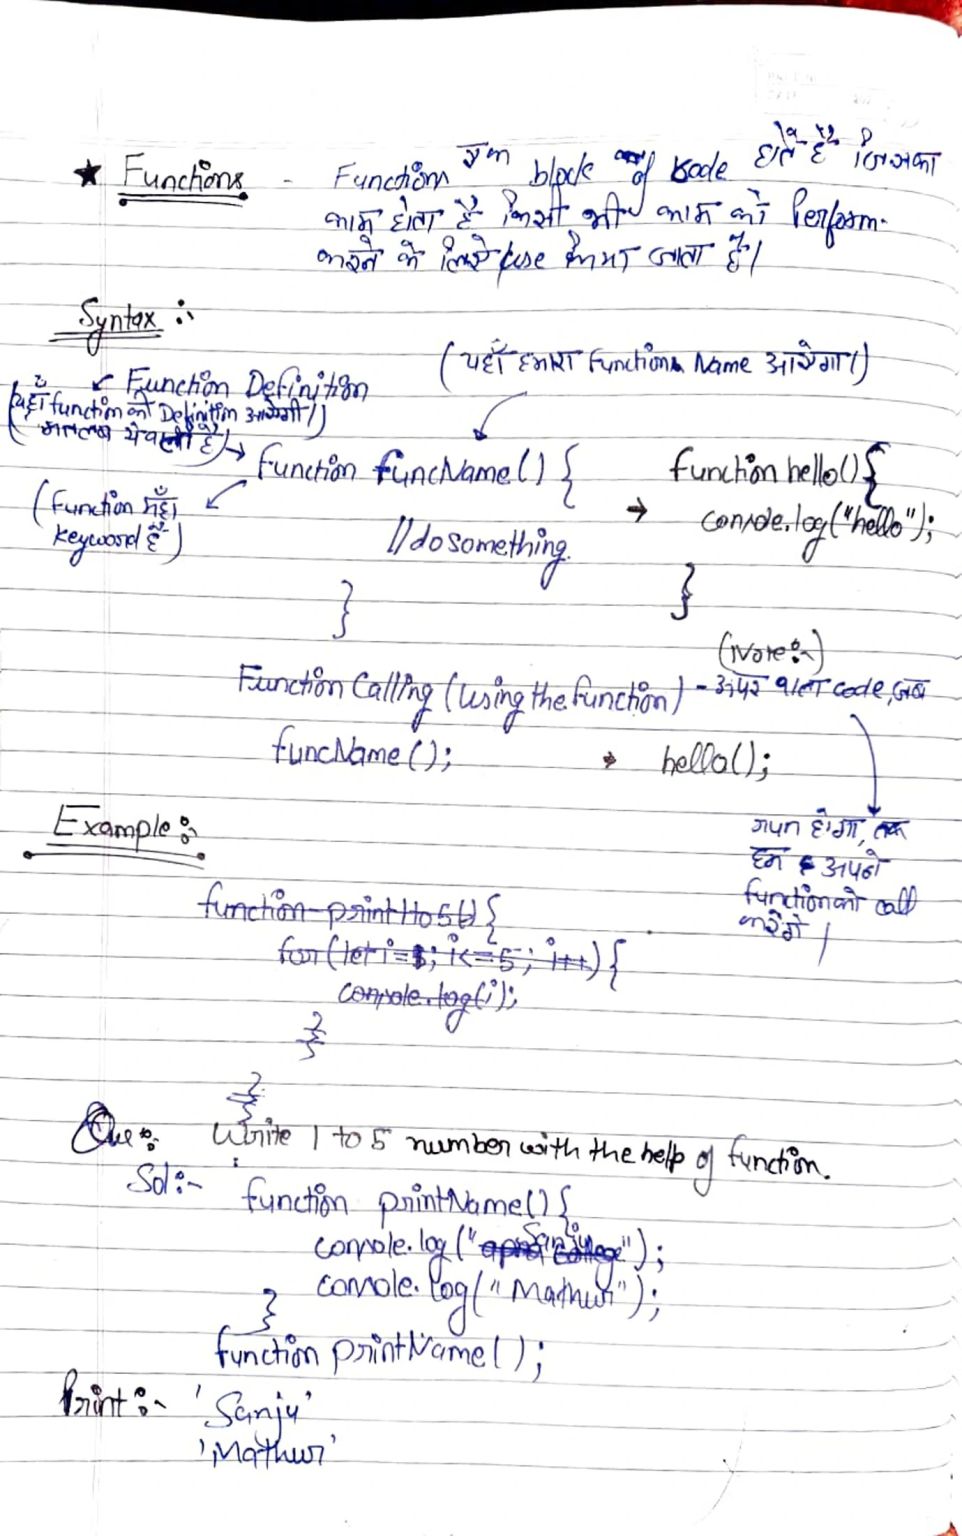 ★ Functions - Function एक block of code होते हैं जिसका
काम होता है किसी भी काम को Perform.
करने के लिए use किया जाता है।
Syntax :-
(यहाँ हमारा Function Name आयेगा।)
↙ Function Definition
(यहाँ function की Definition आयेगी।)
मतलब ये वाली है) →
Function funcName() {
function hello() {
(Function यहाँ
keyword है)
//do something.
→ console.log("hello");
}
}
(Note:-)
Function Calling (using the function) - ऊपर वाला code, जब
funcName();
→ hello();
Example :-
होगा, तब
हम अपने
function को call
करेंगे।
function printto5() {
for (let i=1; i<=5; i++) {
console.log(i);
}
}
Que:- Write 1 to 5 number with the help of function.
Sol:- function printName() {
console.log("Sanju");
console.log("Mathur");
}
function printName();
Print:- 'Sanju'
'Mathur'